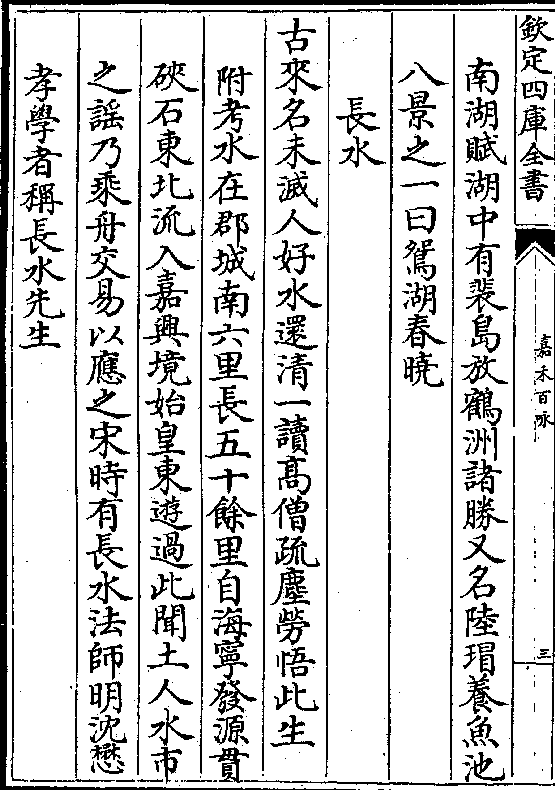 欽定四庫全書
嘉禾百咏
三
南湖賦湖中有裴島放鶴洲諸勝又名陸瑁養魚池
八景之一曰鴛湖春曉
長水
古來名未滅人好水還清一讀高僧疏塵勞悟此生
附考水在郡城南六里長五十餘里自海寧發源貫
硤石東北流入嘉興境始皇東遊過此聞土人水市
之謡乃乘舟交易以應之宋時有長水法師明沈懋
孝學者稱長水先生